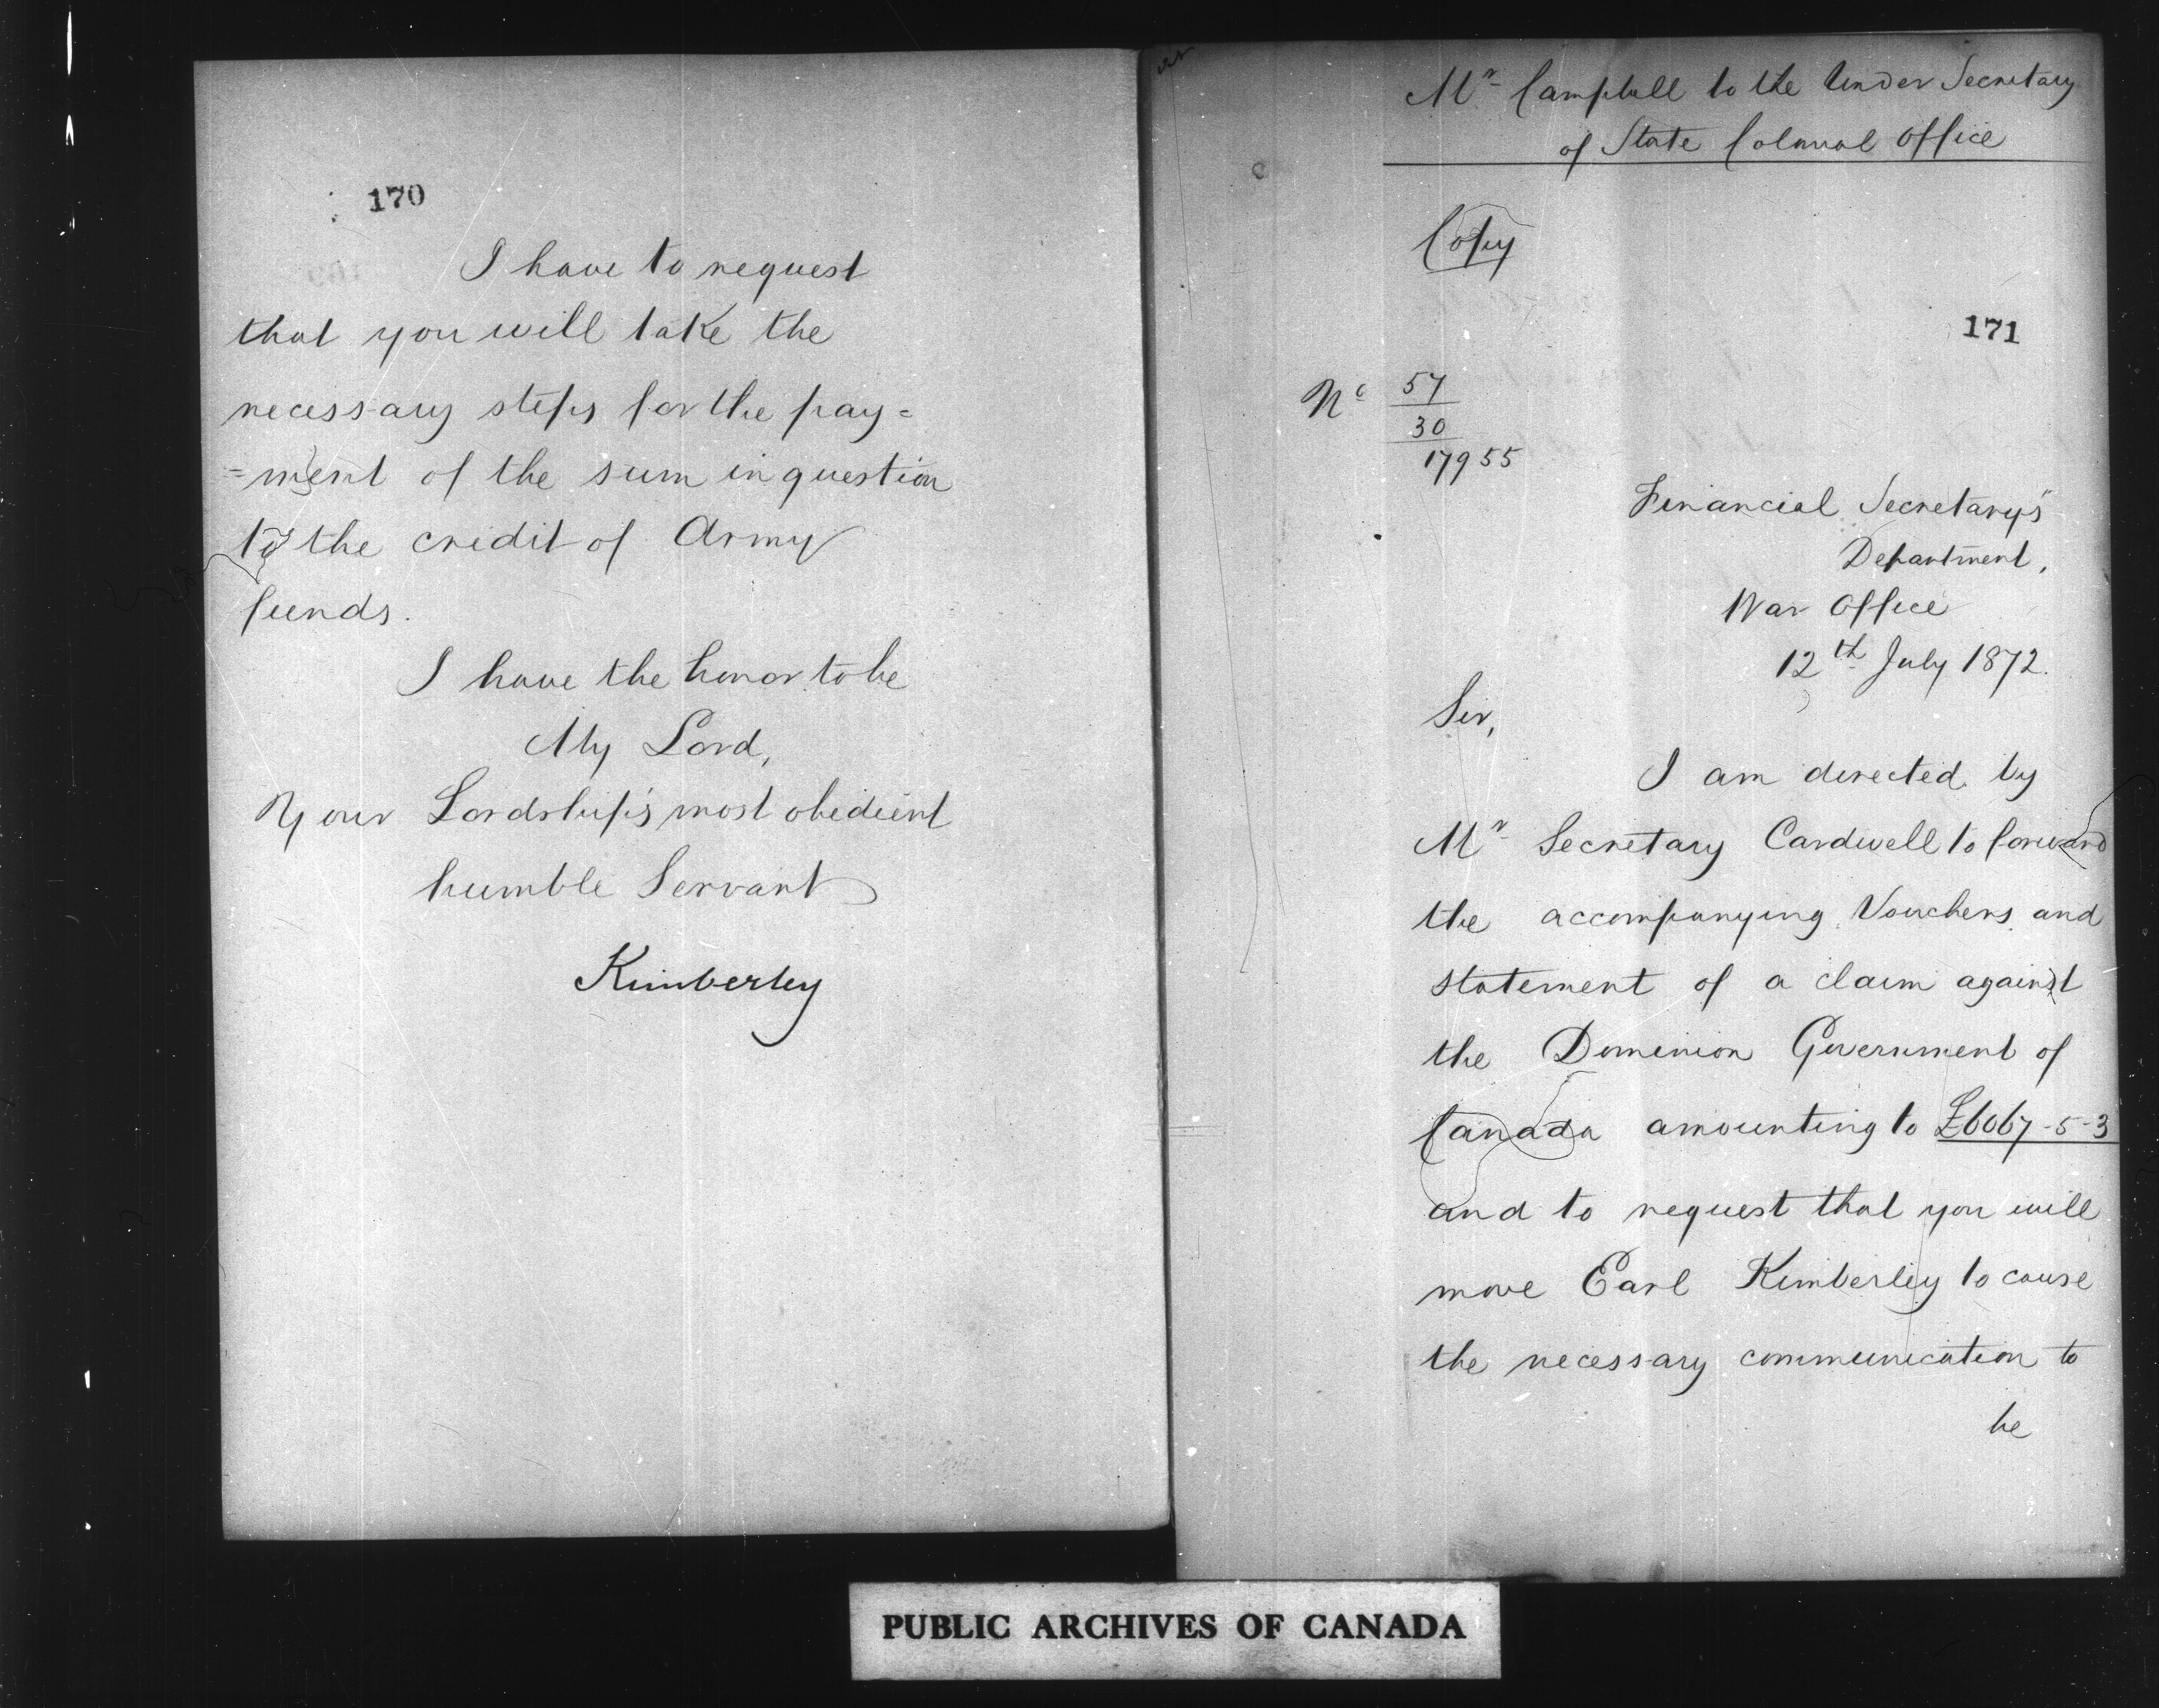 170
I have to request
that you will take the
necessary steps for the pay=
=ment of the sum in question
to the credit of Army
funds.
I have the honor to be
My Lord,
Your Lordship's most obedient
humble Servant
Kimberley
Mr Campbell to the Under Secretary
of State Colonial Office
Copy
171
No 57
30
17955
Financial Secretary's
Department,
War Office
12th July 1872.
Sir,
I am directed by
Mr Secretary Cardwell to forward
the accompanying Vouchers and
statement of a claim against
the Dominion Government of
Canada amounting to £6067-5-3
and to request that you will
move Earl Kimberley to cause
the necessary communication to
be
PUBLIC ARCHIVES OF CANADA